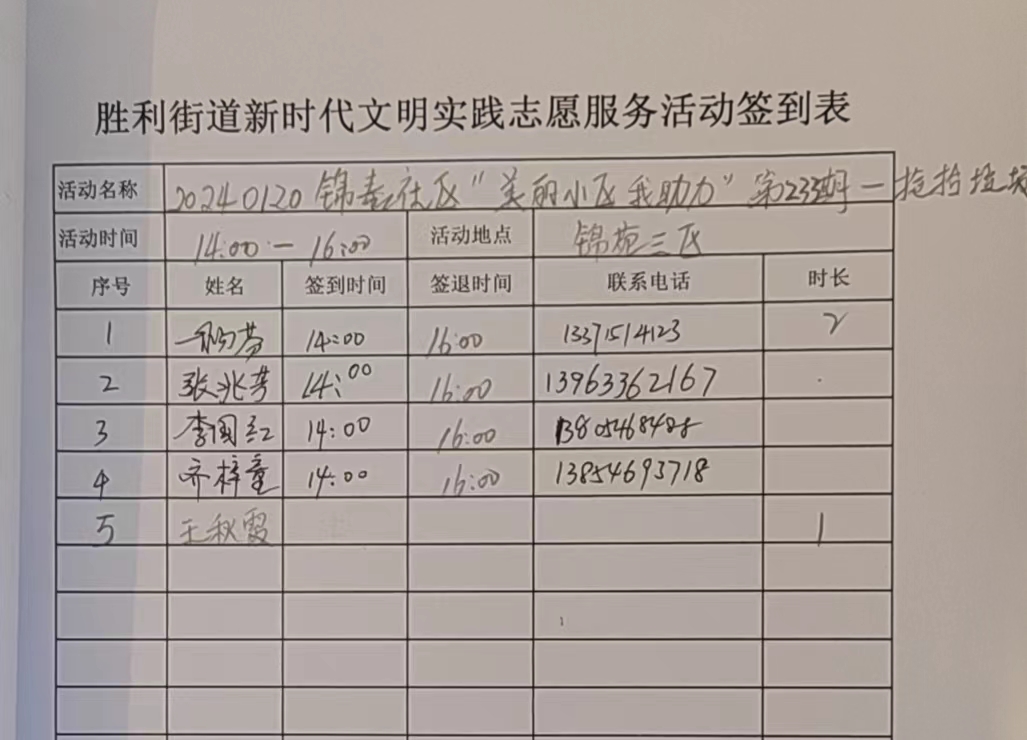 胜利街道新时代文明实践志愿服务活动签到表
活动名称 20240120 锦春社区"美丽小区我助力"第233期一捡拾垃圾
活动时间 14:00一16:00 活动地点 锦苑三区
序号 姓名 签到时间 签退时间 联系电话 时长
1 芬 14:00 16:00 13371514123 2
2 张兆芳 14:00 16:00 13963362167
3 李国红 14:00 16:00
4 齐梓童 14:00 16:00 13854693718
5 王秋霞 1